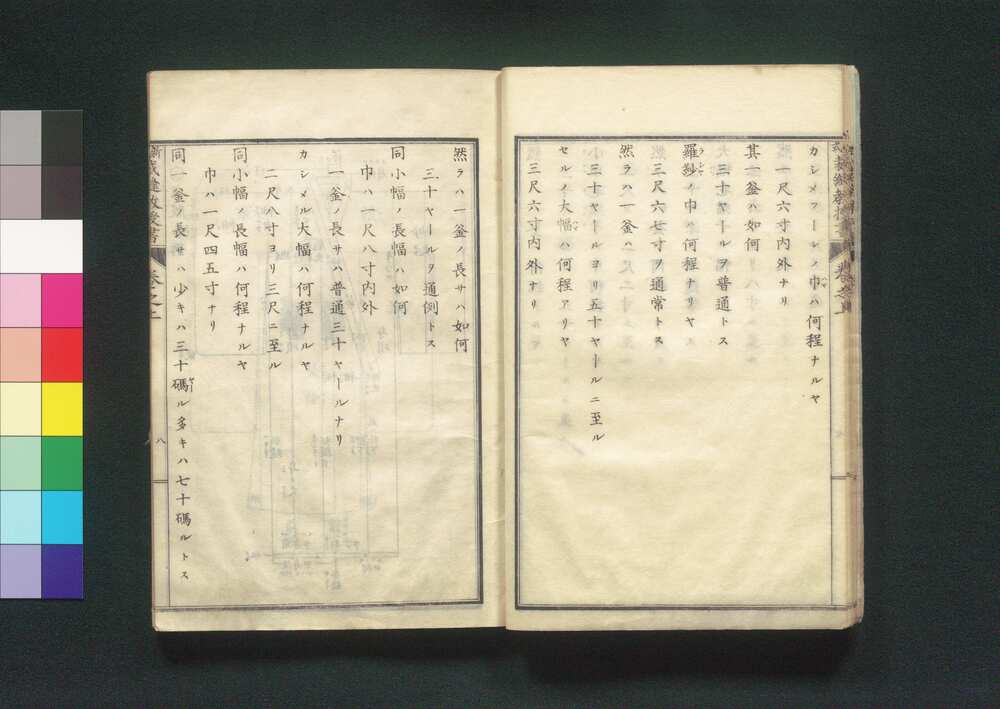 カシメフールノ巾ハ何程ナルヤ
一尺六寸内外ナリ
其一釜ハ如何
三十ヤールヲ普通トス
羅紗ノ巾ハ何程ナリヤ
ラシヤ
三尺六七寸ヲ通常トス
然ラハ一釜ハ
三十ヤールヨリ五十ヤールニ至ル
セルノ大幅ハ何程アリヤ
三尺六寸内外ナリ
然ラハ一釜ノ長サハ如何
三十ヤールヲ通例トス
同小幅ノ長幅ハ如何
巾ハ一尺八寸内外
一釜ノ長サハ普通三十ヤールナリ
カシメル大幅ハ何程ナルヤ
二尺八寸ヨリ三尺ニ至ル
同小幅ノ長幅ハ何程ナルヤ
巾ハ一尺四五寸ナリ
同一釜ノ長サハ少キハ三十碼ル多キハ七十碼ルトス
裁縫教授書
卷之上
八